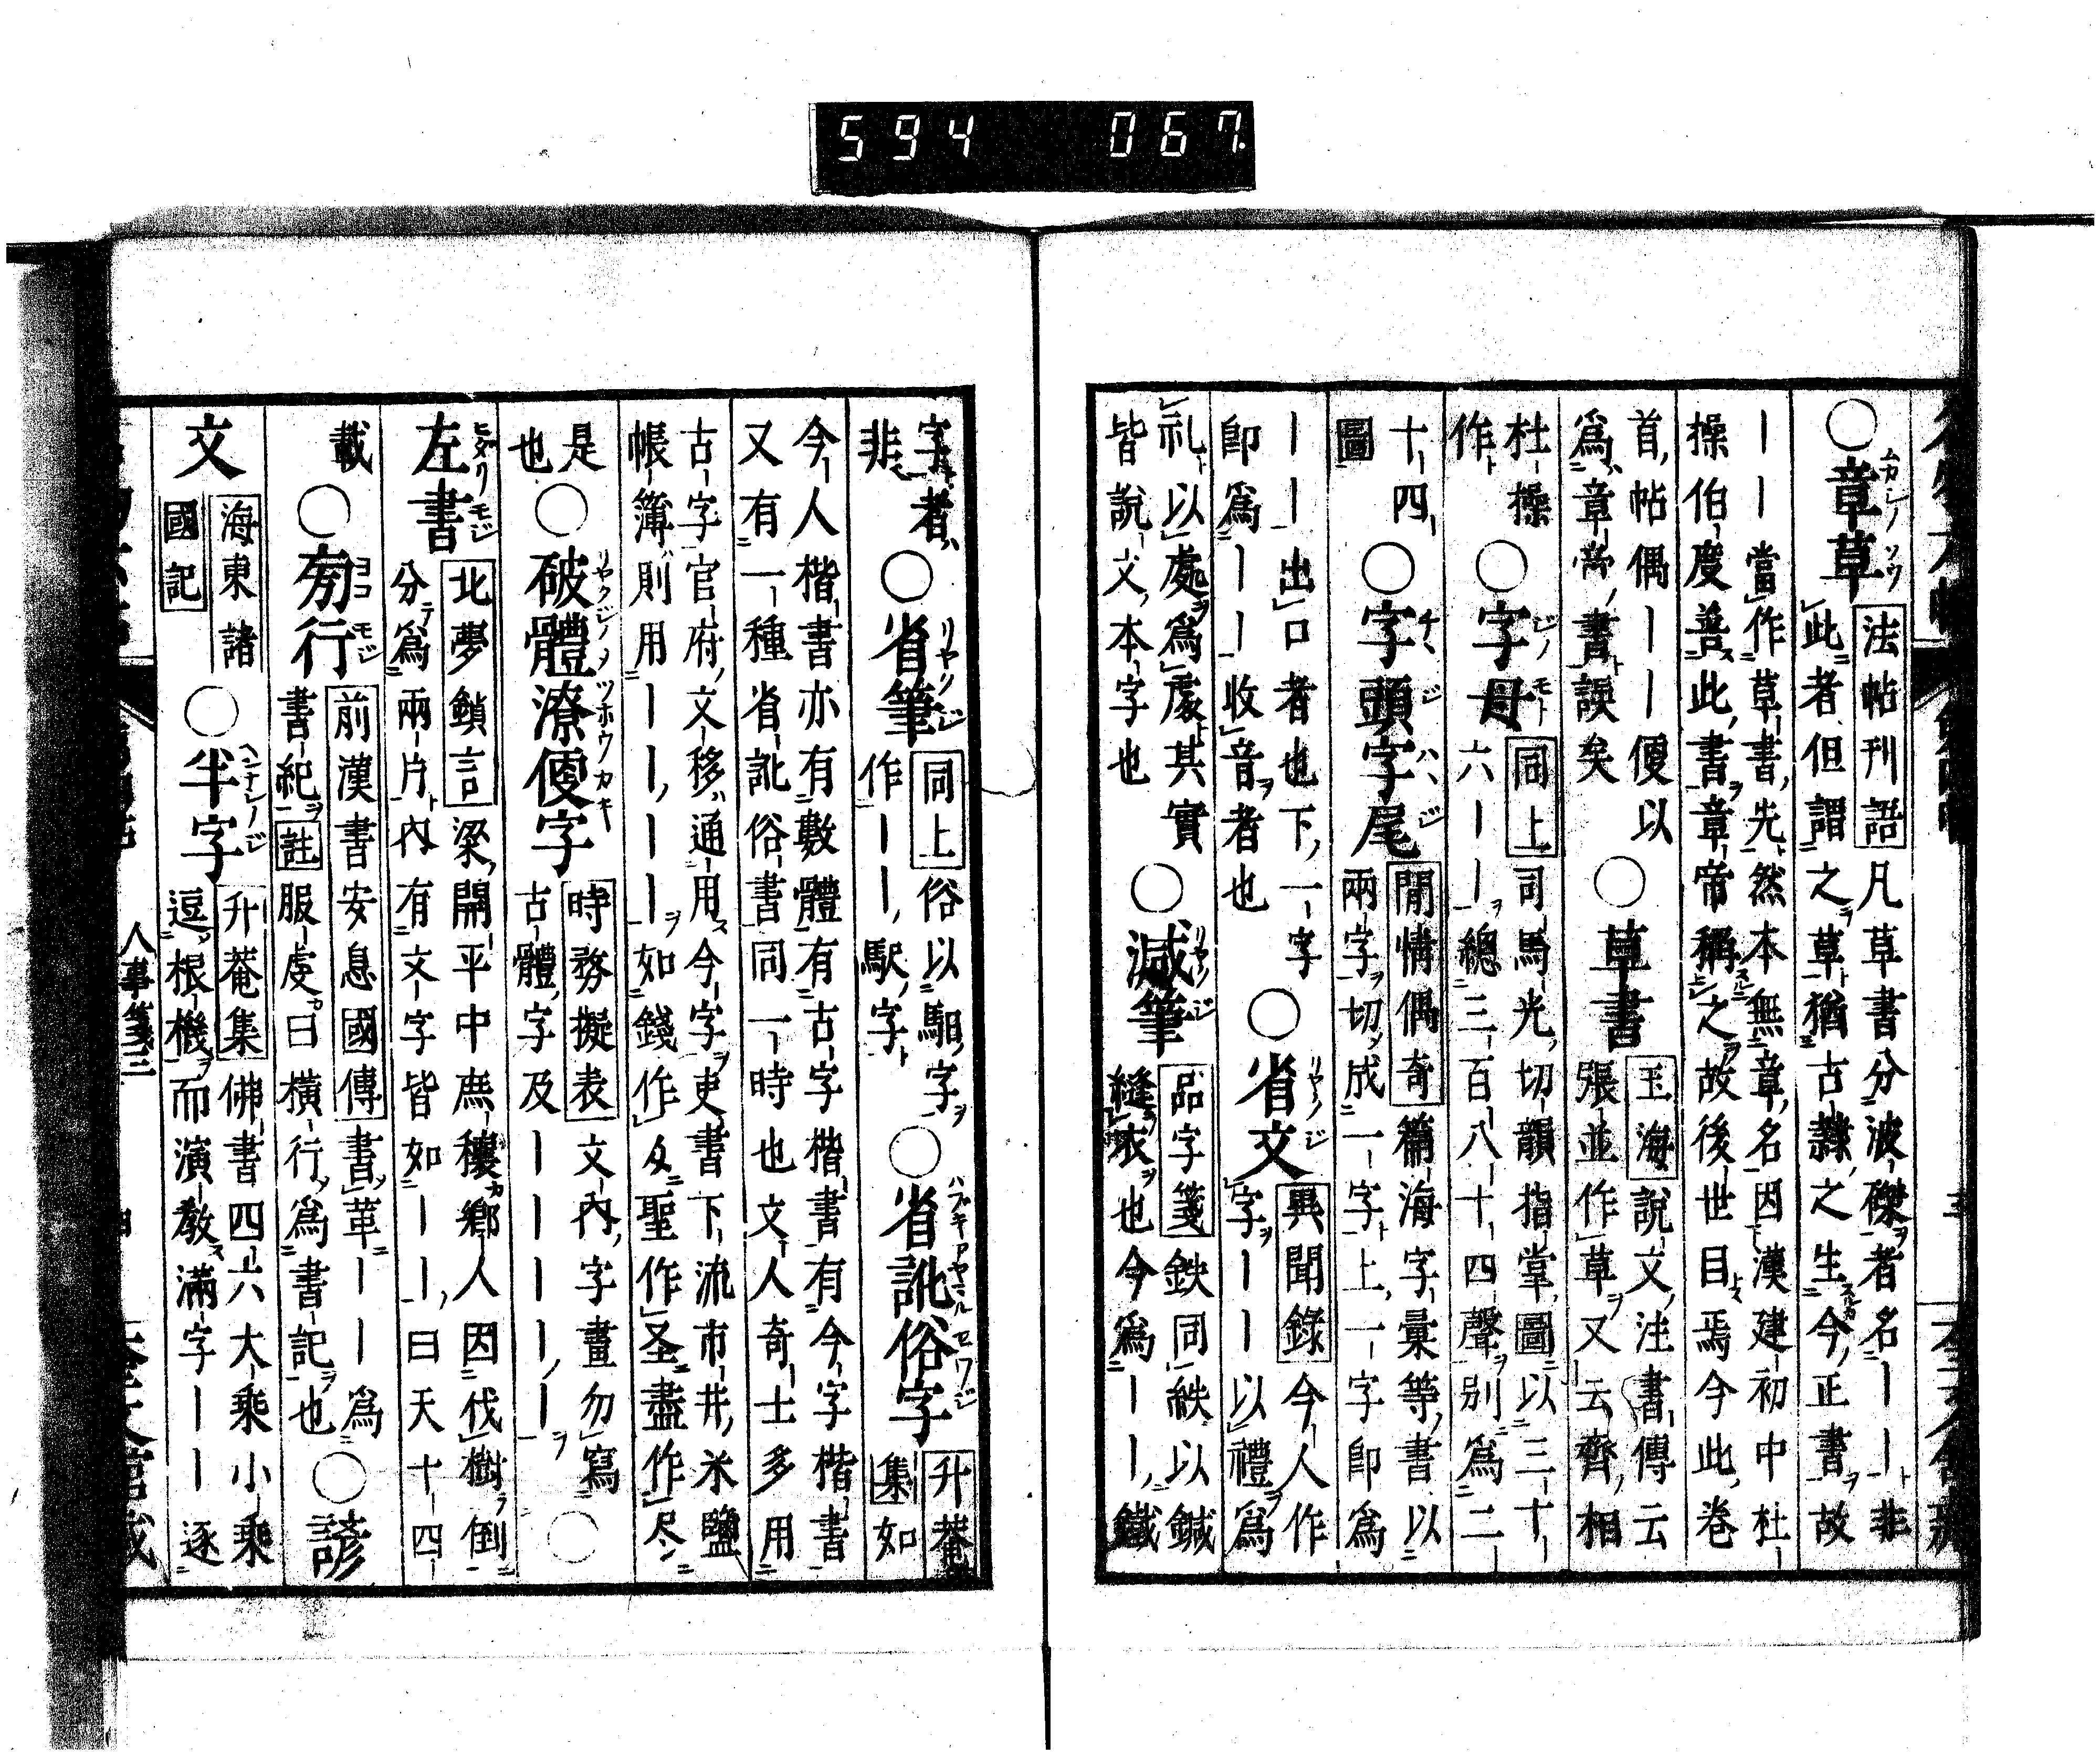 594 067
○章草 法帖刊語 凡草書分波磔者名——非
此者但謂之草猶古隸之生今正書故
——當作草書先然本無章名因漢建初中杜
操伯度善此書章帝稱之故後世目焉今此卷
首帖偶——便以
爲章帝書誤矣 ○草書 玉海 說文注書傳云
張並作草又云齊相
杜操
作 ○字母 同上 司馬光切韻指掌圖以三十
六——總三百八十四聲別爲二
十四
圖 ○字頭字尾 閒情偶寄 篇海字彙等書以
兩字切成一字上一字卽爲
——出口者也下一字
卽爲——收音者也 ○省文 異聞錄 今人作
字——以禮爲
礼以處爲處其實
皆說文本字也 ○減筆 品字箋 鉄同紩以鍼
縫衣也今爲——鐵
字者
非 ○省筆 同上 俗以馹字
作——駅字 ○省訛俗字 升菴集 如
今人楷書亦有數體有古字楷書有今字楷書
又有一種省訛俗書同一時也文人奇士多用
古字官府文移通用今字吏書下流市井米鹽
帳簿則用————如錢作 聖作圣盡作尽
是
也 ○破體潦便字 時務擬表 文內字畫勿寫
古體字及————— ○
左書 北夢鎖言 梁開平中 穰鄉人因伐樹倒
分爲兩片內有文字皆如——曰天十四
載 ○旁行 前漢書安息國傳 書革——爲
書紀 註 服虔曰橫行爲書記也 ○諺
文 海東諸國記 ○半字 升菴集 佛書四六大乘小乘
逗根機而演教滿字——逐
人事箋三